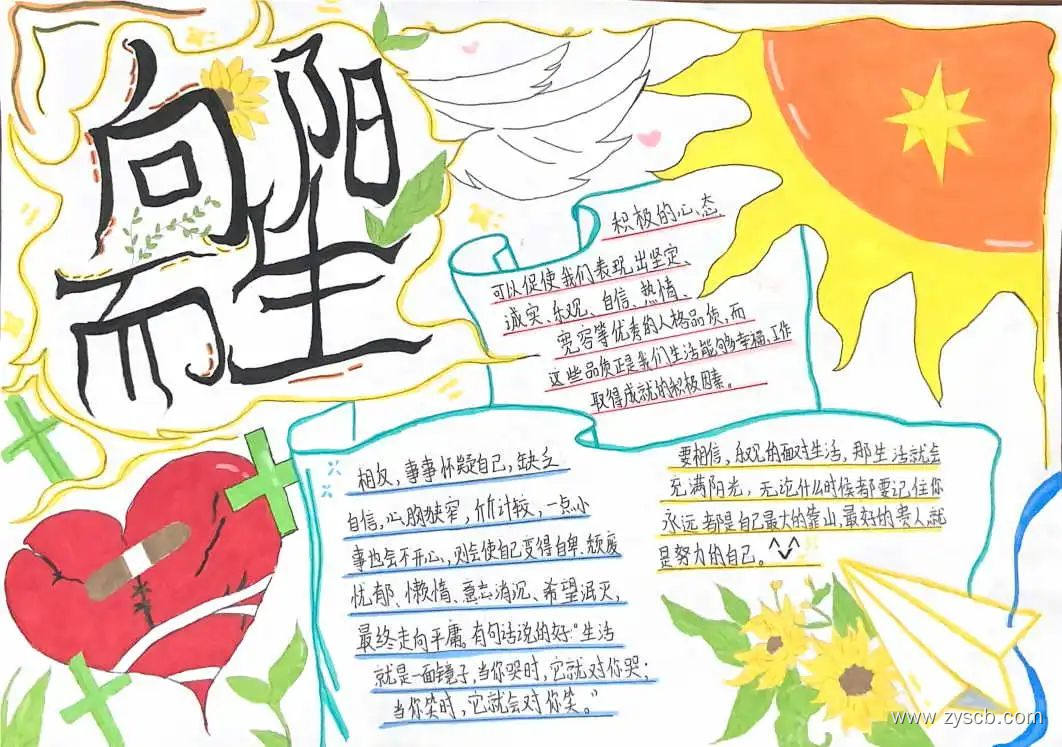 向阳
而生
积极的心态
可以促使我们表现出坚定、
诚实、乐观、自信、热情、
宽容等优秀的人格品质,而
这些品质正是我们生活能够幸福、工作
取得成就的积极因素。
相反,事事怀疑自己,缺乏
自信,心胸狭窄,斤斤计较,一点小
事也会不开心,则会使自己变得自卑、颓废
忧郁、懒惰、意志消沉、希望泯灭,
最终走向平庸。有句话说的好:“生活
就是一面镜子,当你哭时,它就对你哭;
当你笑时,它就会对你笑。”
要相信,乐观的面对生活,那生活就会
充满阳光,无论什么时候都要记住你
永远都是自己最大的靠山,最好的贵人就
是努力的自己。
www.zyscb.com